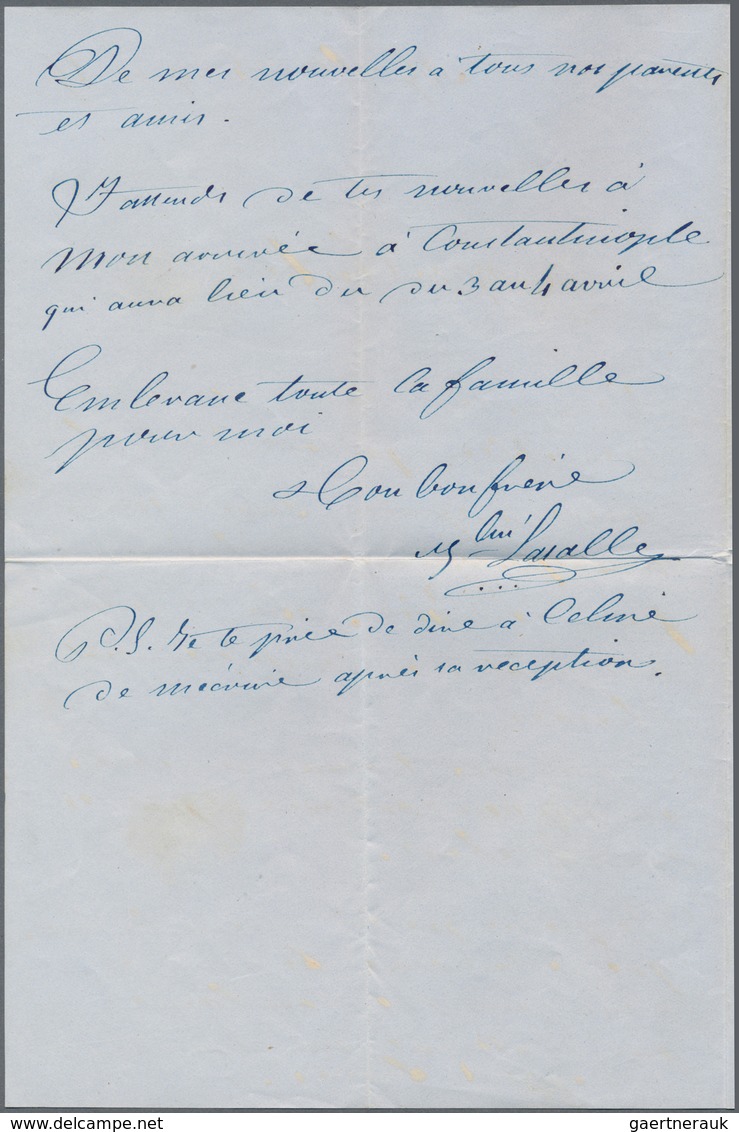 De mes nouvelles à tous nos parents
et amis.
J'attends de tes nouvelles à
Mon arrivée à Constantinople
qui aura lieu du du 3 au 4 avril
Embrasse toute la famille
pour moi
Ton bon frère
Lasalle
P.S. Je te prie de dire à Celine
de m'écrire après sa réception.
gaertnerauk